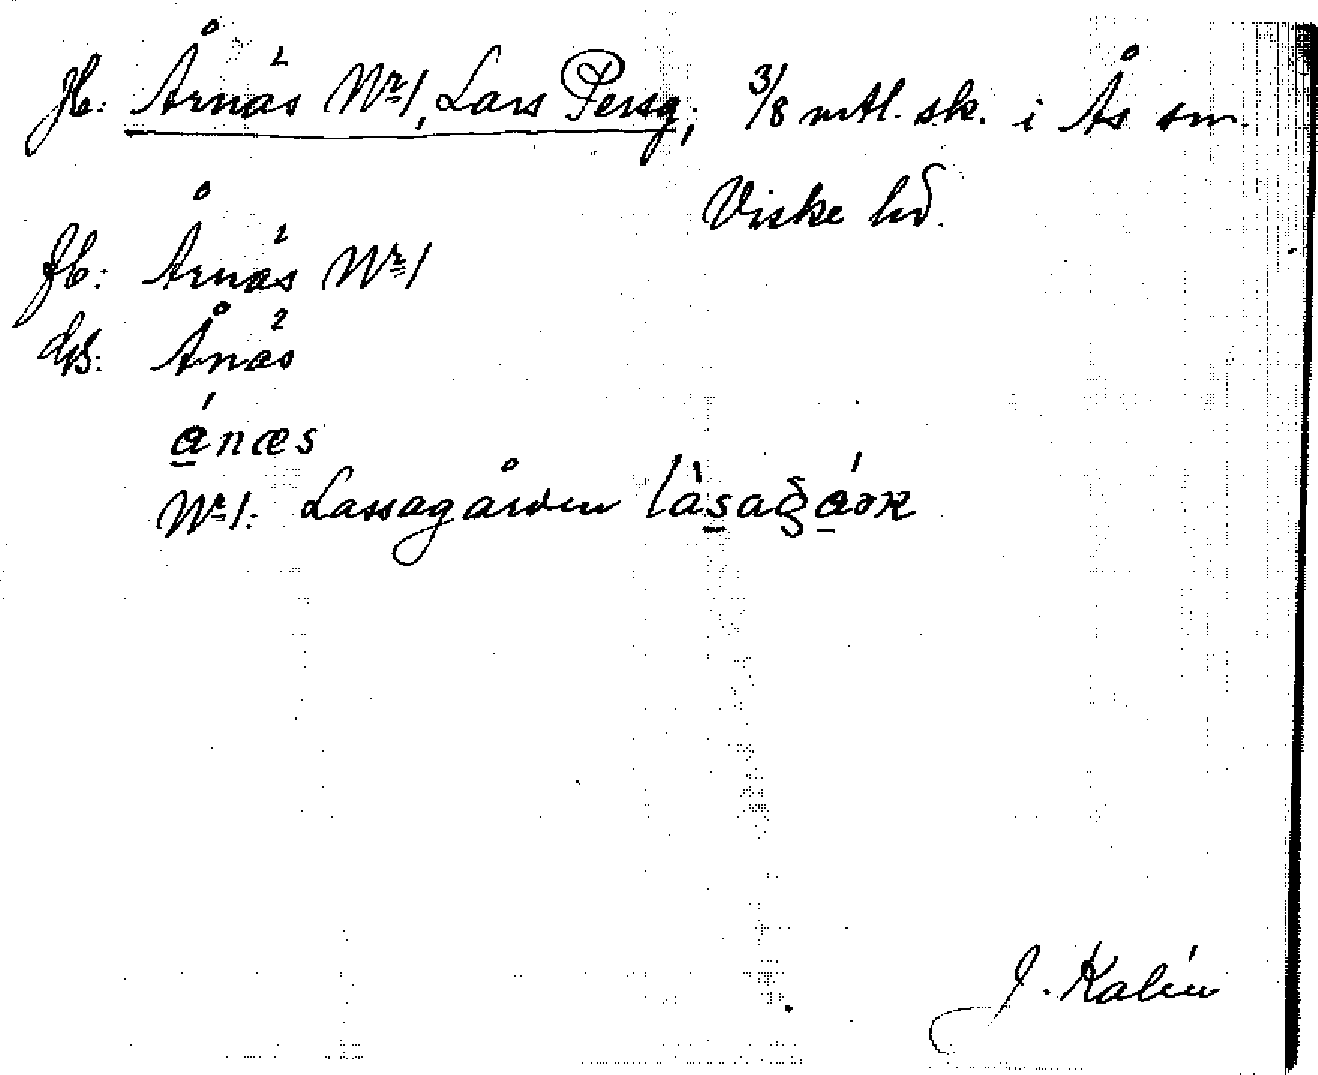 Jb: Årnäs Nr 1, Lars Persg, 3/8 mtl. sk. i Ås sn.
Viske hd.
fb: Årnäs Nr 1
Gs: Ånäs
ánæs
Nr 1: Lassagården
J. Kalén